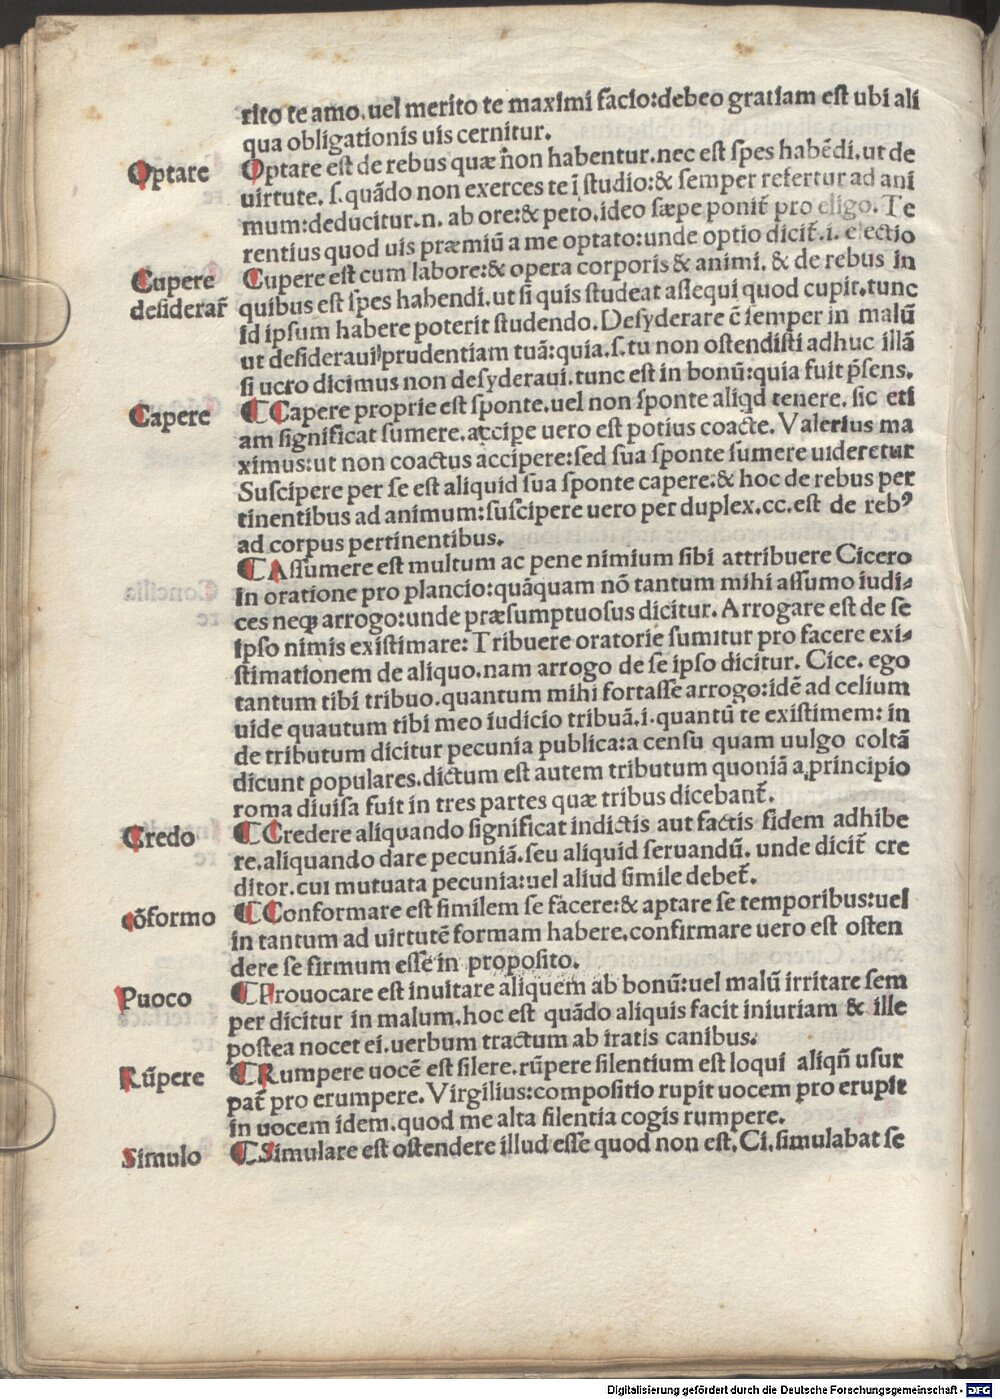 rito te amo. uel merito te maximi facio: debeo gratiam est ubi ali
qua obligationis uis cernitur.
Optare
Optare est de rebus quæ non habentur. nec est spes habēdi. ut de
uirtute. s. quādo non exerces te ī studio: & semper refertur ad ani
mum: deducitur. n. ab ore: & peto. ideo sæpe ponit̃ pro eligo. Te
rentius quod uis præmiū a me optato: unde optio dicit̃. i. electio
Cupere
Cupere est cum labore: & opera corporis & animi. & de rebus in
desiderar̃
quibus est spes habendi. ut si quis studeat assequi quod cupit. tunc
id ipsum habere poterit studendo. Desyderare ē semper in malū
ut desideraui prudentiam tuā: quia. s. tu non ostendisti adhuc illā
si uero dicimus non desyderaui. tunc est in bonū: quia fuit p̄sens.
Capere
Capere proprie est sponte. uel non sponte aliqd tenere. sic eti
am significat sumere. accipe uero est potius coacte. Valerius ma
ximus: ut non coactus accipere: sed sua sponte sumere uideretur
Suscipere per se est aliquid sua sponte capere: & hoc de rebus per
tinentibus ad animum: suscipere uero per duplex. cc. est de rebꝰ
ad corpus pertinentibus.
Assumere est multum ac pene nimium sibi attribuere Cicero
in oratione pro plancio: quāquam nō tantum mihi assumo iudi-
ces neqꝫ arrogo: unde præsumptuosus dicitur. Arrogare est de se
ipso nimis existimare: Tribuere oratorie sumitur pro facere exi-
stimationem de aliquo. nam arrogo de se ipso dicitur. Cice. ego
tantum tibi tribuo. quantum mihi fortasse arrogo: idē ad celium
uide quautum tibi meo iudicio tribuā. i. quantū te existimem: in
de tributum dicitur pecunia publica: a censu quam uulgo coltā
dicunt populares. dictum est autem tributum quoniā a principio
roma diuisa fuit in tres partes quæ tribus dicebant̃.
Credo
Credere aliquando significat indictis aut factis fidem adhibe
re. aliquando dare pecuniā. seu aliquid seruandū. unde dicit̃ cre
ditor. cui mutuata pecunia: uel aliud simile debet̃.
cōformo
Conformare est similem se facere: & aptare se temporibus: uel
in tantum ad uirtutē formam habere. confirmare uero est osten
dere se firmum esse in proposito.
Puoco
Prouocare est inuitare aliquem ab bonū: uel malū irritare sem
per dicitur in malum. hoc est quādo aliquis facit iniuriam & ille
postea nocet ei. uerbum tractum ab iratis canibus.
Rūpere
Rumpere uocē est silere. rūpere silentium est loqui aliqñ usur
pat̃ pro erumpere. Virgilius: compositio rupit uocem pro erupit
in uocem idem. quod me alta silentia cogis rumpere.
Simulo
Simulare est ostendere illud esse quod non est. Ci. simulabat se
Digitalisierung gefördert durch die Deutsche Forschungsgemeinschaft - DFG